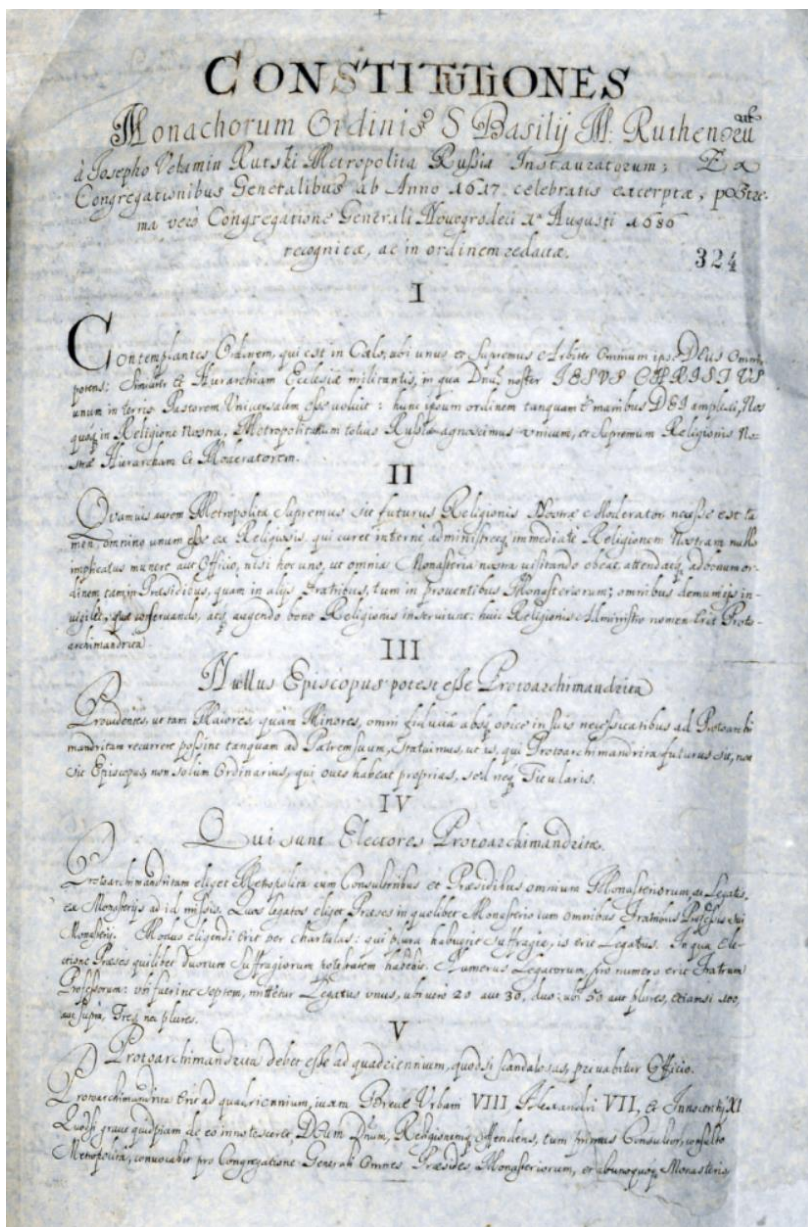 CONSTITUTIONES
Monachorum Ordinis S Basilij M. Ruthenoru
à Josepho Velamin Rutski Metropolita Russiæ Instauratorum; Ex
Congregationibus Generalibus ab Anno 1617. celebratis excerptæ, postre-
ma vero Congregatione Generali Novogrodeci 1ª Augusti 1686
recognitæ, ac in ordinem redactæ.
324
I
Contemplantes Ordinem, qui est in Cælo, ubi unus et Supremus Arbiter Omnium ipse DEUS Omni-
potens: Similiter et Hierarchiam Ecclesiæ militantis, in qua Dnus noster IESVS CHRISTVS
unum in terris Pastorem Universalem esse voluit: hunc ipsum ordinem tanquam è manibus DEI amplexi, Nos
quoq in Religione Nostra, Metropolitanum totius Russiæ agnoscimus unicum, et Supremum Religionis No-
stræ Hierarcham et Moderatorem.
II
Quamvis autem Metropolita Supremus sit futurus Religionis Nostræ Moderator, necesse est ta
men, omnino unum esse ex Religiosis, qui curet interne administretq immediate Religionem Nostram nullo
implicatus munere aut Officio, nisi hoc uno, ut omnia Monasteria nostra visitando obeat, attendatq ad bonum or-
dinem tam in Præsidibus, quam in alijs Fratribus, tum in proventibus Monasteriorum; omnibus demum ijs in-
vigilet, quæ conservando, atq augendo bono Religionis inserviunt: huic Religionis Administro nomen erit Proto-
archimandrita
III
Nullus Episcopus potest esse Protoarchimandrita
Providentes, ut tam Maiores, quàm Minores, omni fiducia absq obice in suis necessitatibus ad Protoarchi
mandritam recurrere possint tanquam ad Patrem suum, statuimus, ut is, qui Protoarchimandrita futurus sit, non
sit Episcopus, non solum Ordinarius, qui oves habeat proprias, sed neq Titularis.
IV
Qui sunt Electores Protoarchimandritæ.
Protoarchimandritam eliget Metropolita cum Consultoribus et Præsidibus omnium Monasteriorum, ac Legatis,
ex Monasterijs ad id missis. Quos legatos eliget Præses in quolibet Monasterio cum omnibus Fratribus Professis sui
Monasterij. Modus eligendi erit per chartulas: qui plura habuerit suffragia, is erit Legatus. In qua Ele-
ctione Præses quilibet duorum Suffragiorum potestatem habebit. Numerus Legatorum, pro numero erit Fratrum
Professorum: ubi fuerint septem, mittetur Legatus unus, ubi vero 20 aut 30, duo: ubi 50 aut plures, etiamsi 100,
aut supra, Tres, non plures.
V
Protoarchimandrita debet esse ad quadriennium, quod si scandalosus, privabitur Officio.
Protoarchimandrita erit ad quadriennium, iuxta Breve Urbani VIII Alexandri VII, et Innocentij XI
Quod si grave quidpiam de eo innotesceret DEUM Dnum, Religionemq offendens, tum primus Consultor, consulto
Metropolita, convocabit pro Congregatione Generali Omnes Præsides Monasteriorum, et ab unoquoq Monasterio